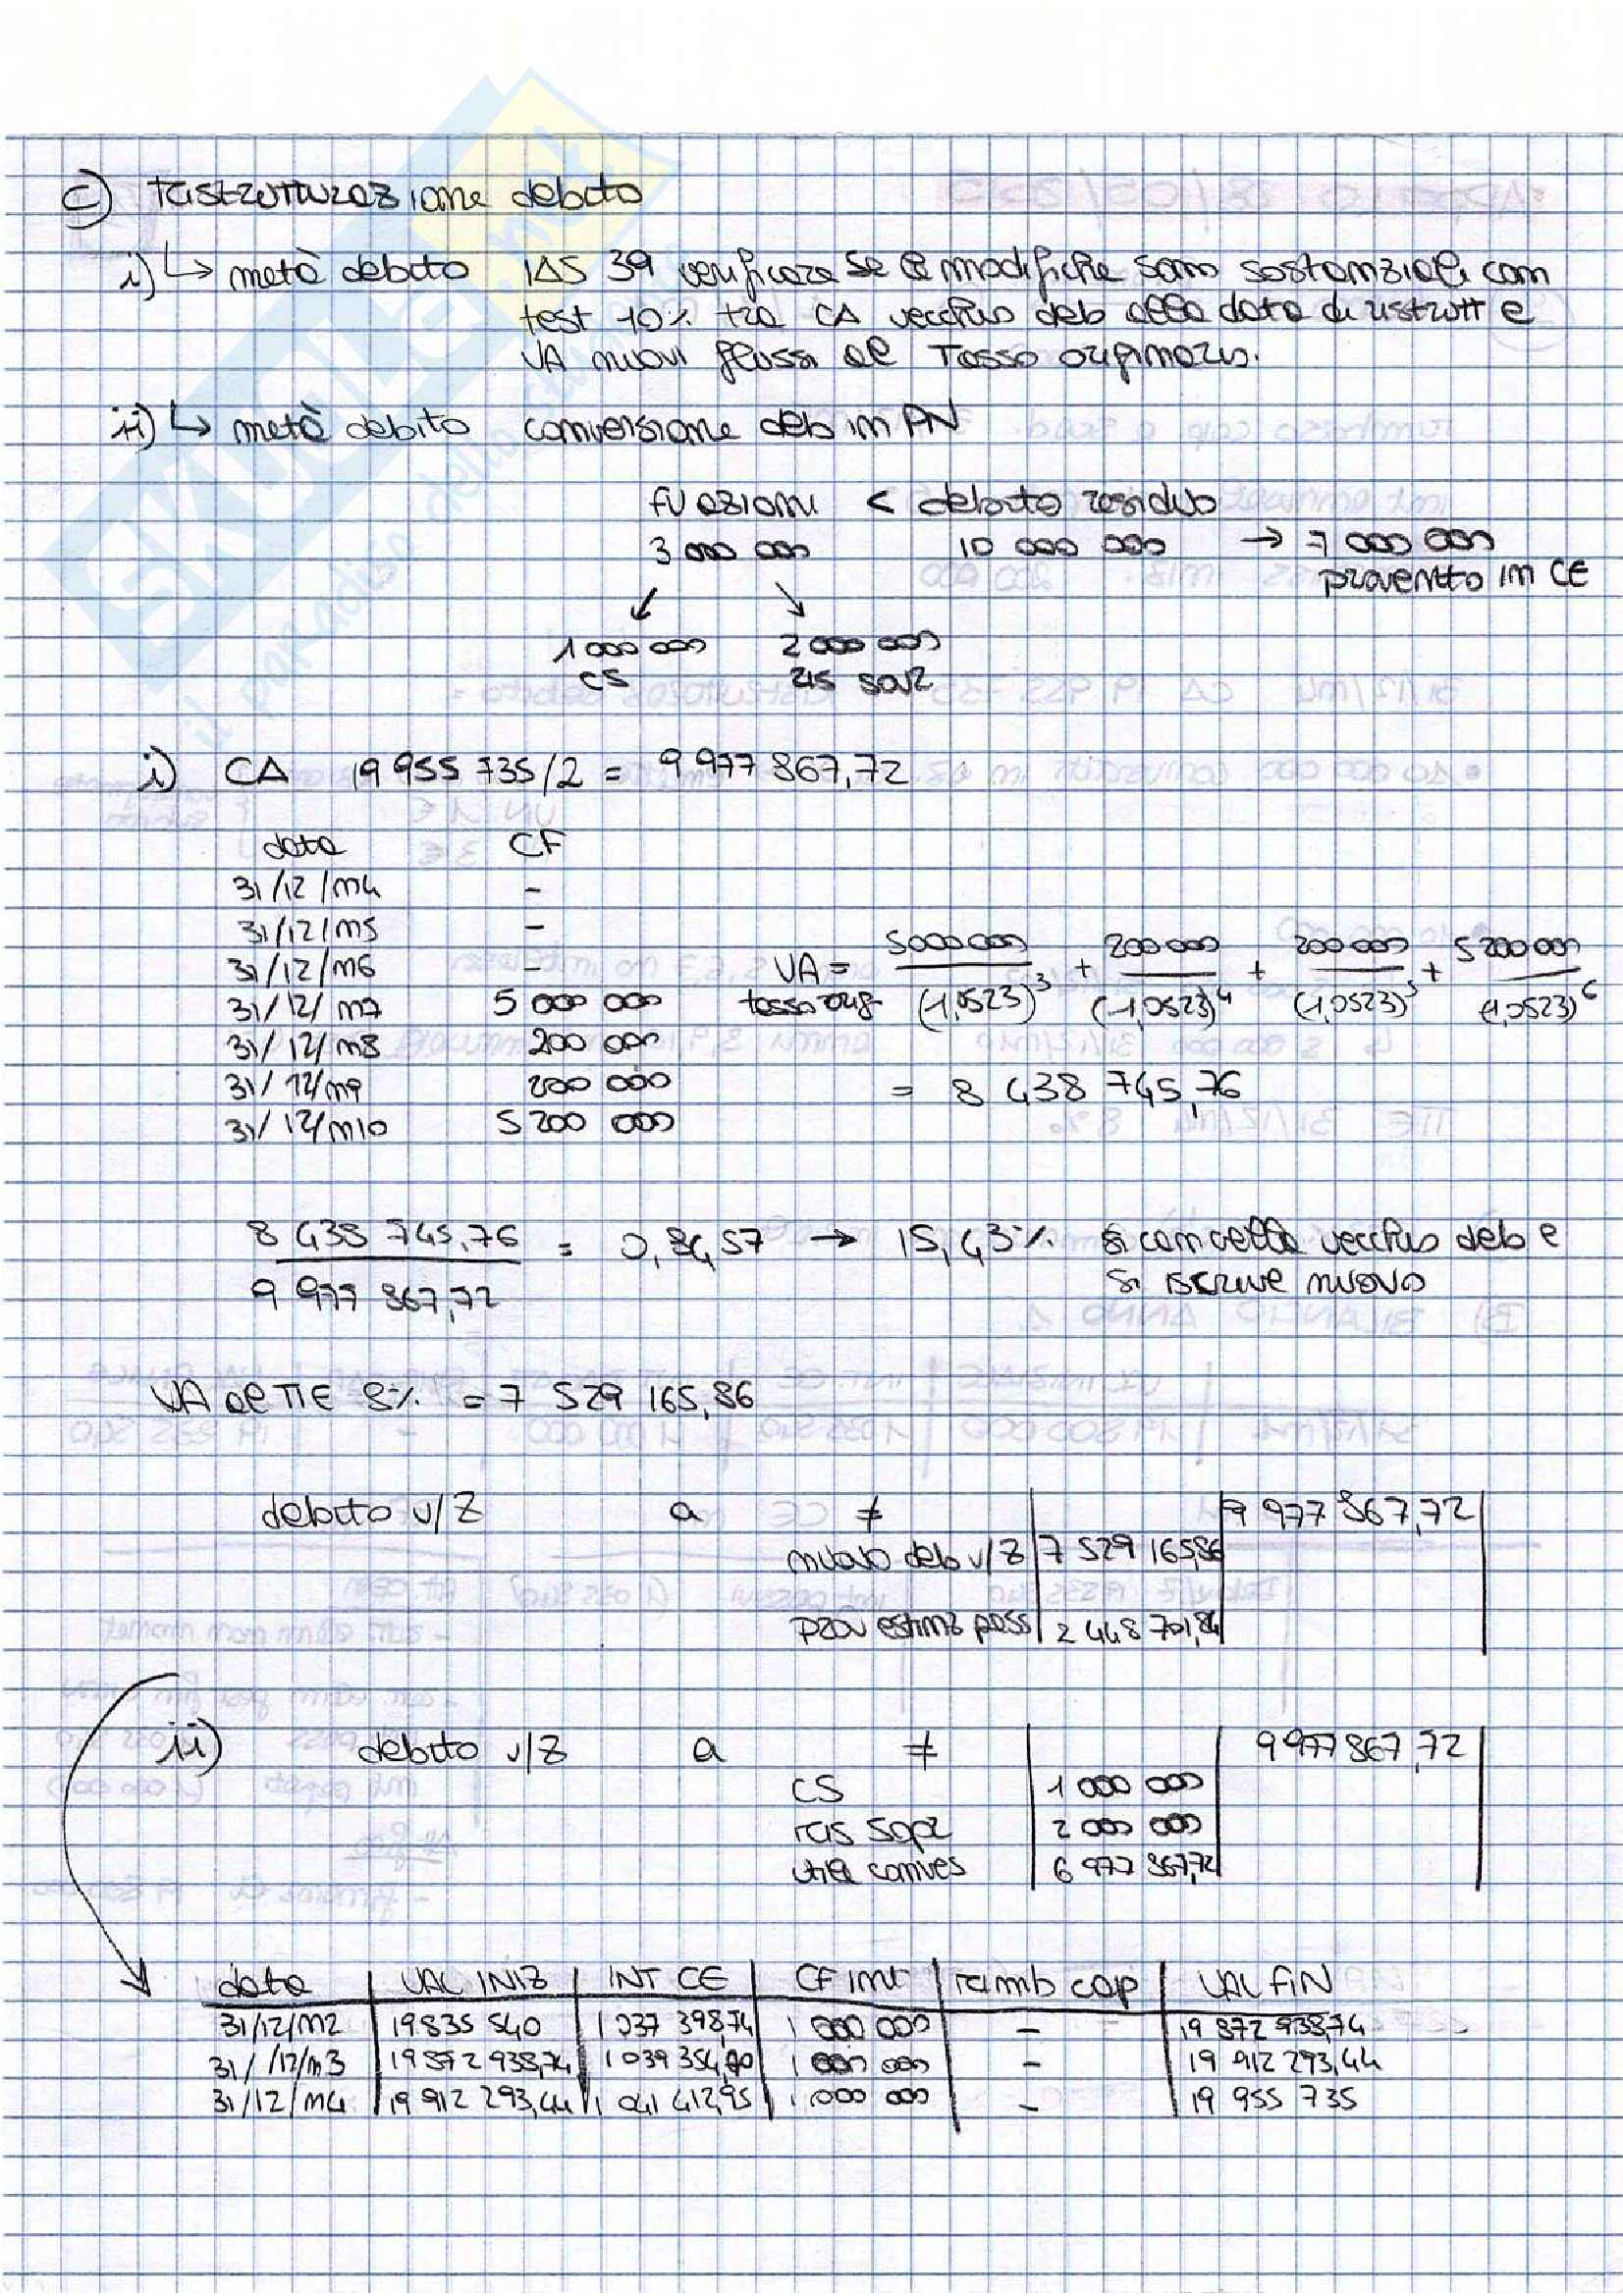 c) ristrutturazione debito
i) ↳ metà debito IAS 39 verificare se le modifiche sono sostanziali con
test 10% tra CA vecchio deb alla data di ristrutt e
VA nuovi flussi al tasso originario.
ii) ↳ metà debito conversione deb in PN
FV azioni < debito residuo
3 000 000 10 000 000 → 7 000 000
provento in CE
↙ ↘
1 000 000 2 000 000
CS ris sovr
i) CA 19 955 735/2 = 9 977 867,72
data CF
31/12/m4 -
31/12/m5 -
31/12/m6 -
31/12/m7 5 000 000
31/12/m8 200 000
31/12/m9 200 000
31/12/m10 5 200 000
VA = 5 000 000 + 200 000 + 200 000 + 5 200 000
tasso orig (1,0523)³ (1,0523)⁴ (1,0523)⁵ (1,0523)⁶
= 8 438 745,76
8 438 745,76 = 0,8457 → 15,43% si cancella vecchio deb e
9 977 867,72 si iscrive nuovo
VA al TIE 8% = 7 529 165,86
debito v/Z a ≠ 9 977 867,72
nuovo deb v/Z 7 529 165,86
prov estinz pass 2 448 701,86
ii) debito v/Z a ≠ 9 977 867,72
CS 1 000 000
ris sopr 2 000 000
utile conves 6 977 867,72
data VAL INIZ INT CE CF int rimb cap VAL FIN
31/12/m2 19 835 540 1 037 398,74 1 000 000 - 19 872 938,74
31/12/m3 19 872 938,74 1 039 354,70 1 000 000 - 19 912 293,44
31/12/m4 19 912 293,44 1 041 412,95 1 000 000 - 19 955 735
SKUOLA.net
il paradiso dello studente